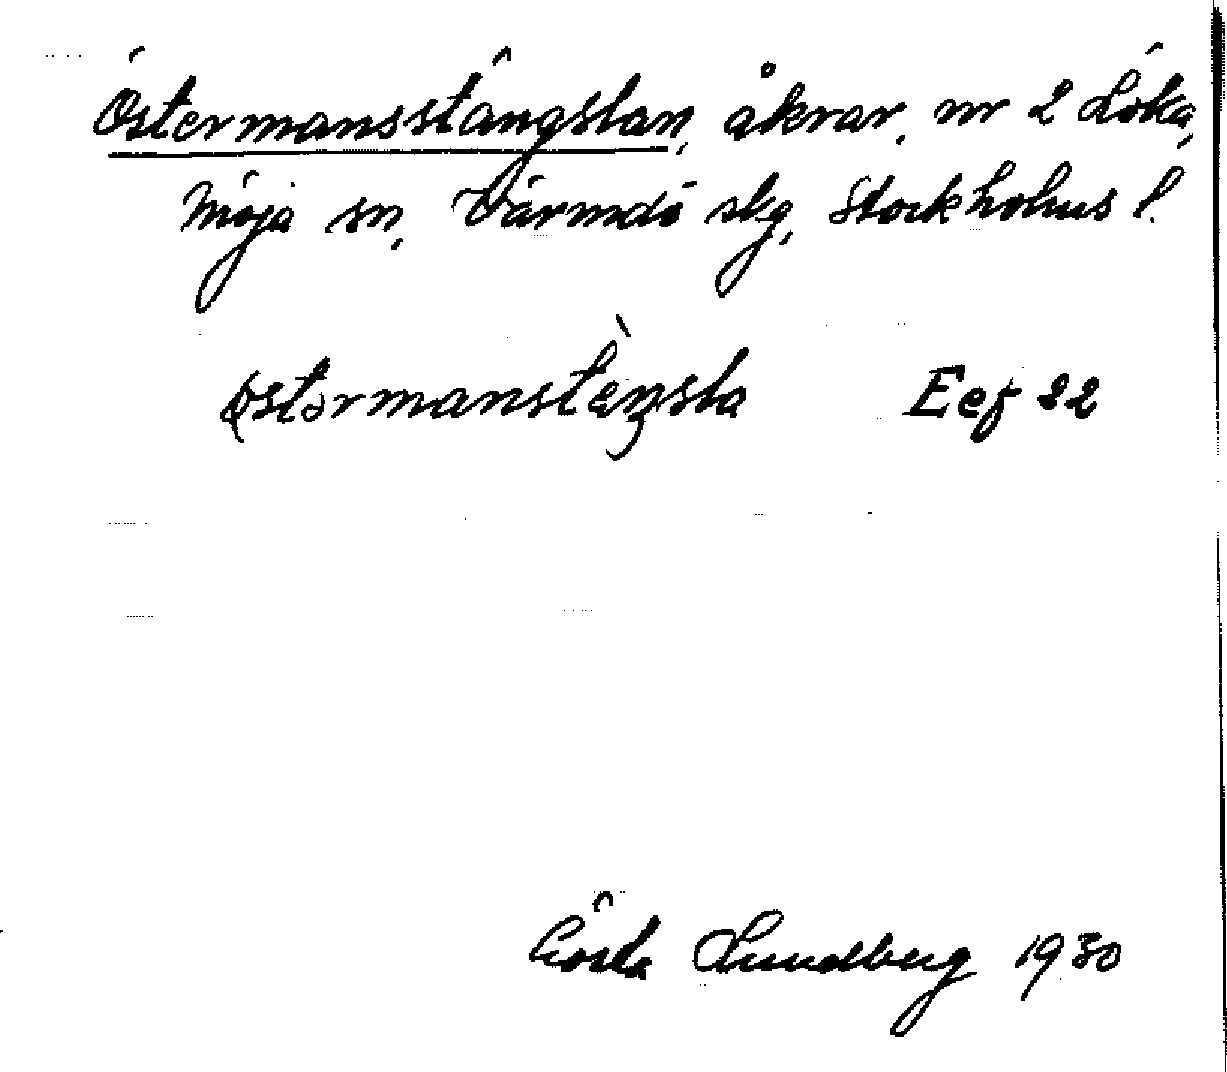 Östermansstängslan, åkrar, nr 2 Löka,
Möja sn, Värmdö slg, Stockholms l.
östərmanstèŋsla Eef 22
Gösta Lundberg 1930